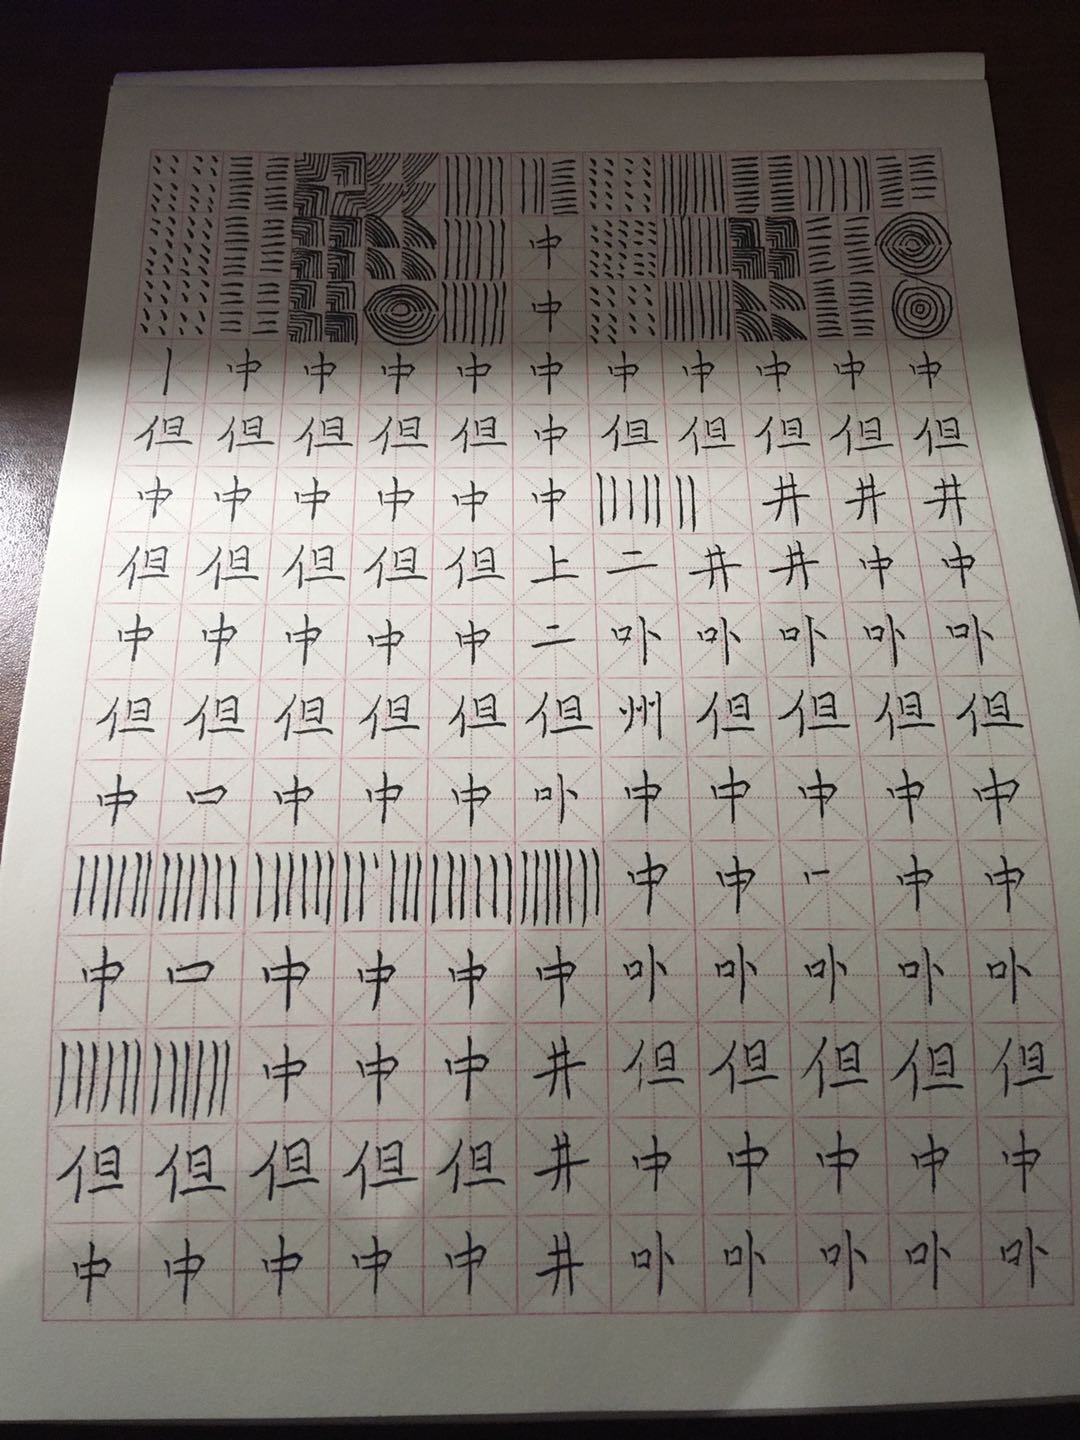 中
中
丨中中中中中中中中中中
但但但但但中但但但但但
中中中中中中井井井
但但但但但上二井井中中
中中中中中二卟卟卟卟卟
但但但但但但州但但但但
中中中中卟中中中中中
中中中中
中中中中中卟卟卟卟卟
中中中井但但但但但
但但但但但井中中中中中
中中中中中井卟卟卟卟卟